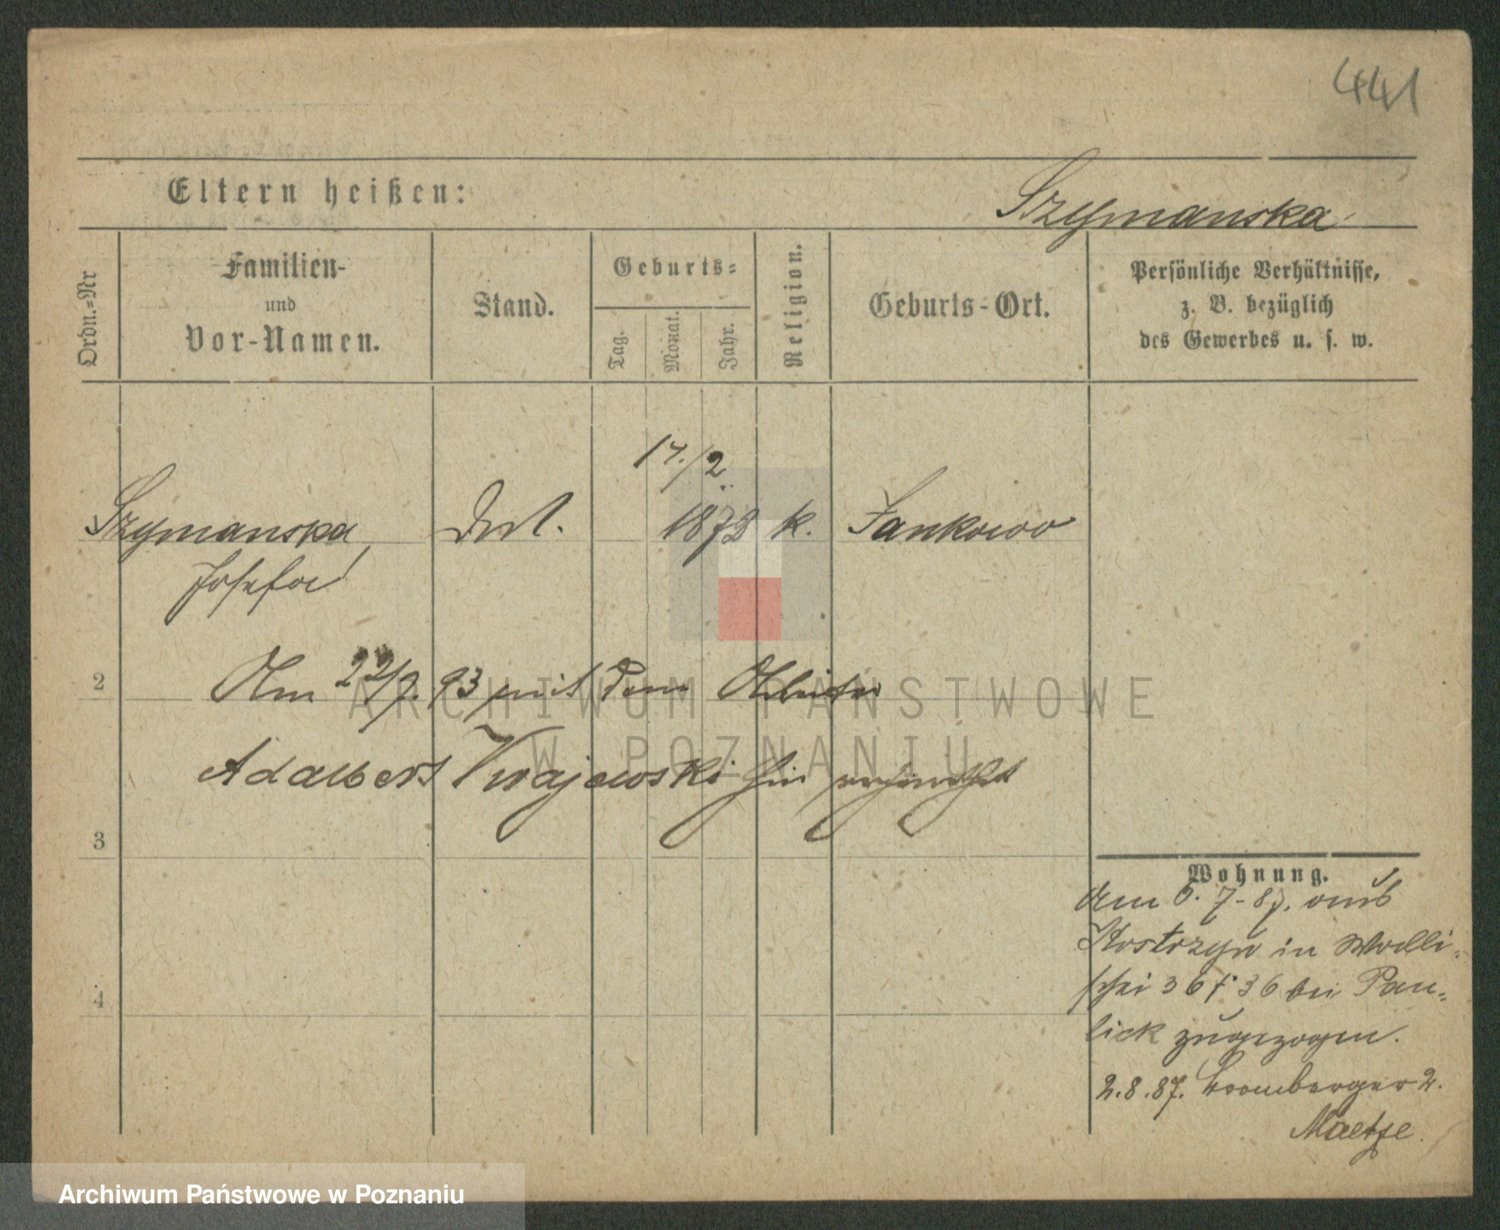 441
Eltern heißen:
Szymanska
Ordn.=Nr
Familien-
und
Vor-Namen.
Stand.
Geburts=
Tag.
Monat.
Jahr.
Religion.
Geburts-Ort.
Persönliche Verhältnisse,
z. B. bezüglich
des Gewerbes u. s. w.
17./2.
Szymanska, 1872 k. Jankowo
Josefa
2 Am 22/7. 93 mit dem Arbeiter
Adalbert Krajewski hier verheirathet
3
4
Wohnung.
Am 6. 7-87. aus
Kostrzyn in Walli-
schei 36 f 36 bei Pau-
lick zugezogen.
2.8.87. Bromberger 2.
Maetze.
ARCHIWUM PAŃSTWOWE
W POZNANIU
Archiwum Państwowe w Poznaniu